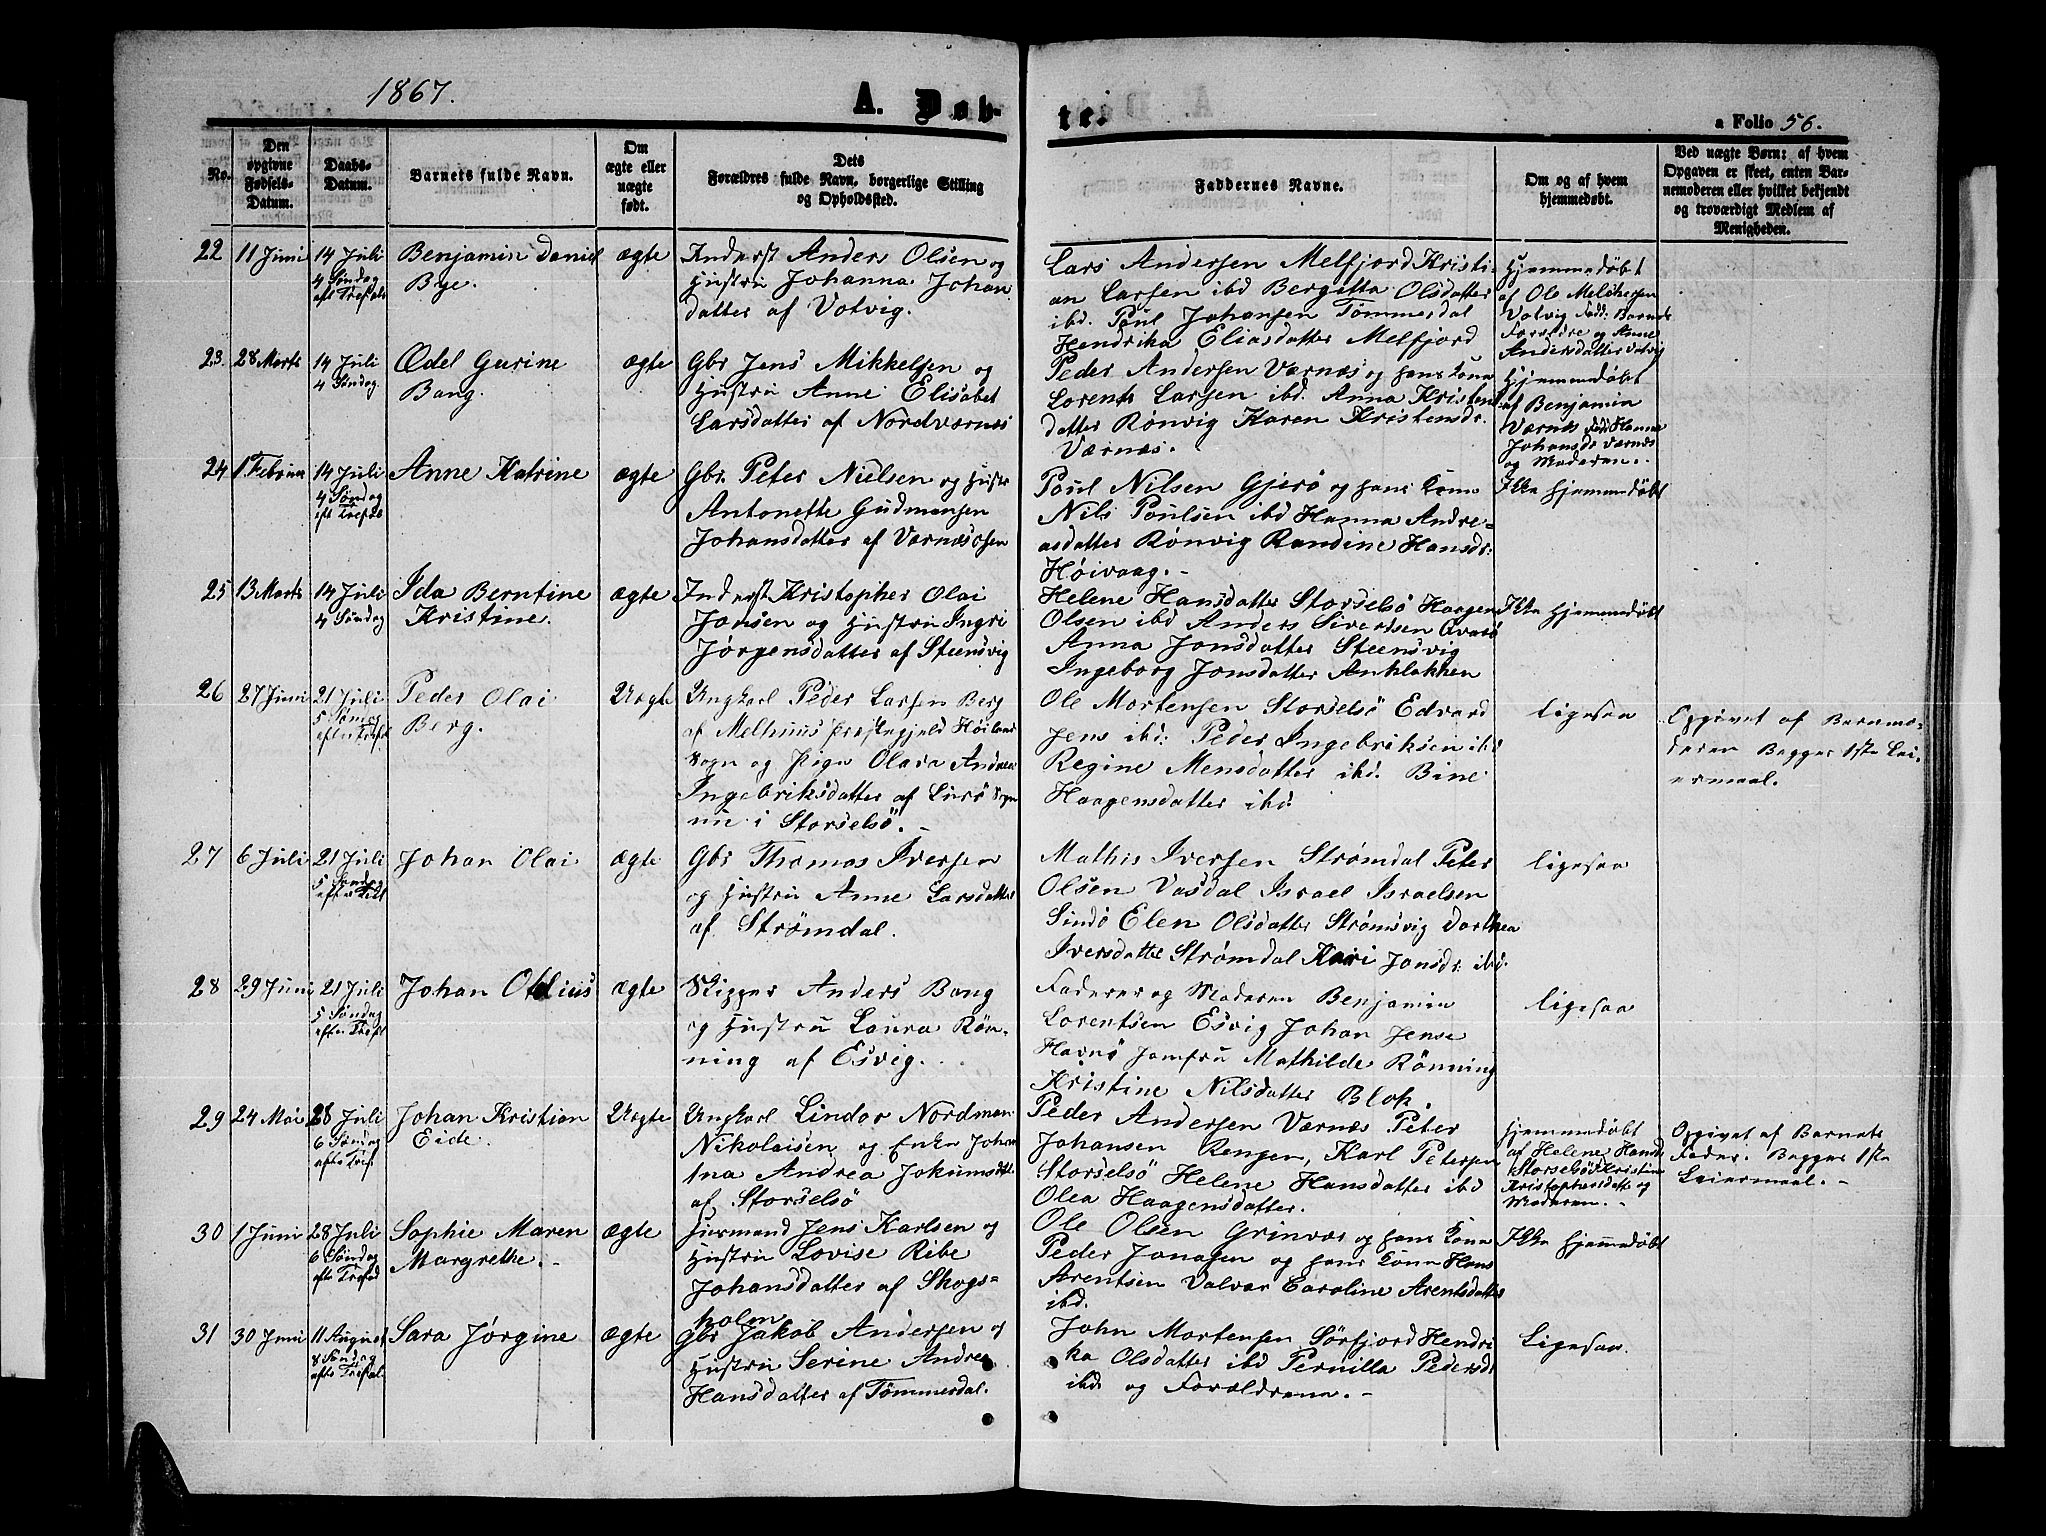 1867.
A. Døb-
te.
a Folio 56.
No.
Den
opgivne
Fødsels-
Datum.
Daabs-
Datum.
Barnets fulde Navn.
Om
ægte eller
uægte
født.
Dets
Forældres fulde Navn, borgerlige Stilling
og Opholdssted.
Faddernes Navne.
Om og af hvem
hjemmedøbt.
Ved uægte Børn: af hvem
Opgaven er skeet, enten Bar-
nemoderen eller hvilket bekjendt
og troværdigt Medlem af
Menigheden.
22
11 Juni
14 Juli
4 Søndag
eft Trefold
Benjamin Daniel
Bye.
ægte
Inderst Anders Olsen og
Hustru Johanna Johan
datter af Votvig.
Lars Andersen Melfjord Kristi-
an Larsen ibd Bergitta Olsdatter
ibd. Poul Johansen Tømmerdal
Hendrika Eliasdatter Melfjord
Hjemmedøbt
af Ole
Votvig Fadd: Barnets
Forældre og Anne
Andersdatter Votvig
23.
28 Marts
14 Juli
4 Søndag.
Ædel Gurine
Bang.
ægte
Gbr Jens Mikkelsen og
Hustru Anne Elisabet
Larsdatter af Nordværnæs
Peder Andersen Værnæs og hans Kone
Lorents Larsen ibd. Anna Kristens
datter Rønvig Karen Kristensdr.
Værnæs.
Hjemmedøbt
af Benjamin
Værnæs Fadd: Hanna
Johansdr Værnæs
og Moderen.
24
1 Februar
14 Juli
4 Søndag
eft Trefold
Anne Katrine
ægte
Gbr. Peter Nielsen og Hustr
Antonette Gudmansen
Johansdatter af Værnæsosen
Poul Nilsen Gjerø og hans Kone
Nils Poulsen ibd Hanna Andre-
asdatter Rønvig Randine Hansdr:
Høivaag.
Ikke hjemmedøbt
25
13 Marts
14 Juli
4 Søndag
Ida Berntine
Kristine.
ægte
Inderst Kristopher Olai
Jonsen og Hustru Ingri
Jørgensdatter af Steensvig
Helene Hansdatter Storselsø Haagen
Olsen ibd Anders Sivertsen Qvarø
Anna Jonsdatter Steensvig
Ingeborg Jonsdatter Anklakken
Ikke hjemmedøbt
26
27 Juni
21 Juli
5 Søndag
efter Trefold
Peder Olai
Berg.
Uægte
Ungkarl Peder Larsen Berg
af Melhuus Præstegjeld Høilands
Sogn og Pige Olava Andrea
Ingebriksdatter af Lurø Sogn
nu i Storselsø.
Ole Mortensen Storselsø Edvard
Jens ibd: Peder Ingebriksen ibd
Regine Mensdatter ibd. Bine
Haagensdatter ibd.
ligesaa
Opgivet af Barnemo-
deren Begges 1ste Lei-
ermaal.
27
6 Juli
21 Juli
5 Søndag
efter Trefold
Johan Olai
ægte
Gbr Thomas Iversen
og Hustru Anne Larsdatter
af Strømdal.
Mathis Iversen Strømdal Peter
Olsen Vasdal Israel Israelsen
Sindø Elen Olsdatter Strømsvig Dorthea
Iversdatter Strømdal Kari Jonsdr: ibd.
ligesaa
28
29 Juni
21 Juli
5 Søndag
efter Trefl
Johan Otelius
ægte
Skipper Anders Bang
og Hustru Laura Røn-
ning af Esvig.
Faderen og Moderen Benjamin
Lorentsen Esvig Johan Jense
Havnø Jomfru Mathilde Rønning
Kristine Nilsdatter Blok.
ligesaa
29
24 Mai
28 Juli
6 Søndag
efter Tref
Johan Kristian
Eide.
Uægte
Ungkarl Lindor Nordman
Nikolaisen og Enke Johan
tna Andrea Jokumsdtr
af Storselsø
Peder Andersen Værnæs Peter
Johansen Rengen, Karl Petersen
Storselsø Helene Hansdatter ibd
Olea Haagensdatter.
hjemmedøbt
af Helene Hansd
Storselsø Kristine
Kristophersdatter og
Moderen.
Opgivet af Barnets
Fader. Begges 1ste
Leiermaal.
30
1 Juni
28 Juli
6 Søndag
efter Trefold
Sophie Maren
Margrethe.
ægte
Huusmand Jens Karlsen og
Hustru Lovise Ribe
Johansdatter af Skogs-
holm
Ole Olsen Grinvær og hans Kone
Peder Jonasen og hans Kone Hans
Arentsen Valvær Caroline Arentsdatter
ibd.
Ikke hjemmedøbt
31
30 Juni
11 August
8 Søndag
efter Trefol.
Sara Jørgine
ægte
Gbr Jakob Andersen og
Hustru Serine Andrea
Hansdatter af Tømmerdal.
John Mortensen Sørfjord Hendri
ka Olsdatter ibd Pernilla Pedersdr
ibd og Forældrene.
Ligesaa.